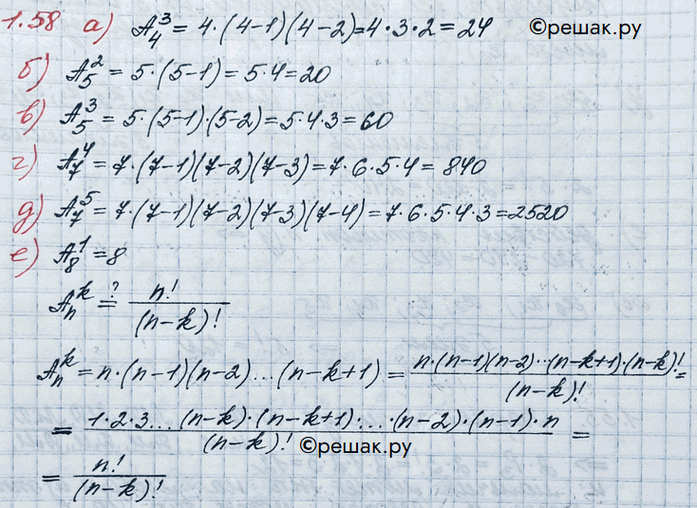 1.58 а) A₄³ = 4·(4-1)(4-2)=4·3·2=24 ©решак.ру
б) A₅² = 5·(5-1)=5·4=20
в) A₅³ = 5·(5-1)·(5-2)=5·4·3=60
г) A₇⁴ = 7·(7-1)(7-2)(7-3)=7·6·5·4=840
д) A₇⁵ = 7·(7-1)(7-2)(7-3)(7-4)=7·6·5·4·3=2520
е) A₈¹ = 8
Aₙᵏ ≟ n!/(n-k)!
Aₙᵏ = n·(n-1)(n-2)...(n-k+1) = n·(n-1)(n-2)...(n-k+1)·(n-k)!/(n-k)! =
= 1·2·3...(n-k)·(n-k+1)·...·(n-2)·(n-1)·n/(n-k)! =
©решак.ру
= n!/(n-k)!